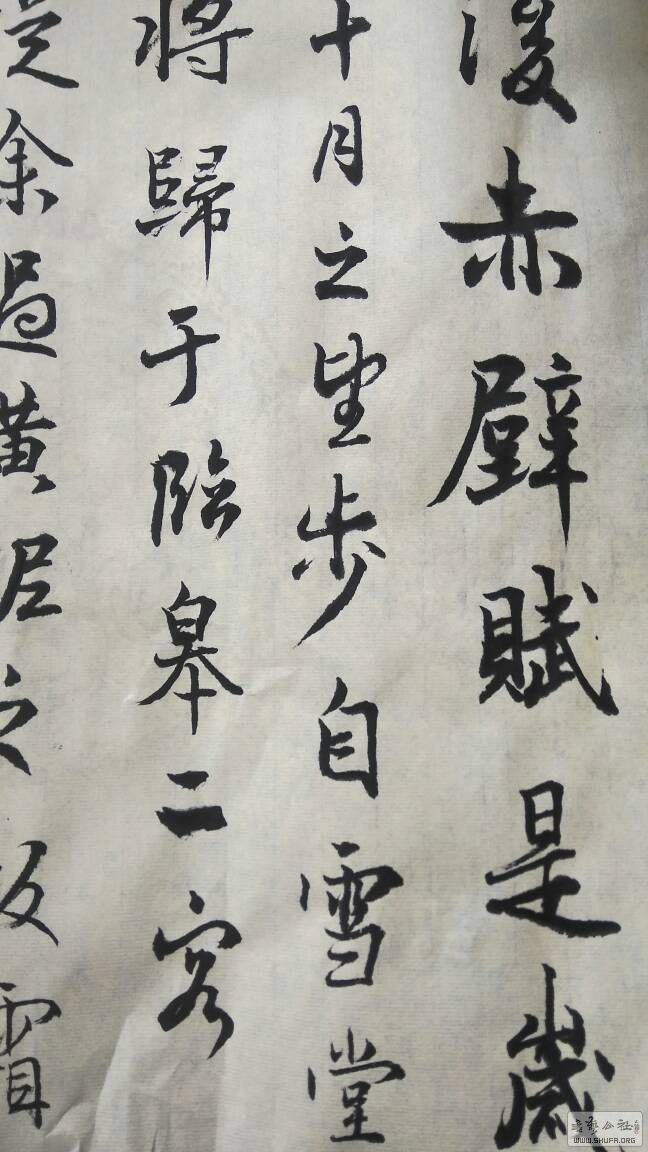 後赤壁賦是歲
十月之望步自雪堂
將歸于臨皋二客
從余過黃泥之坂霜
書藝公社
WWW.SHUFA.ORG